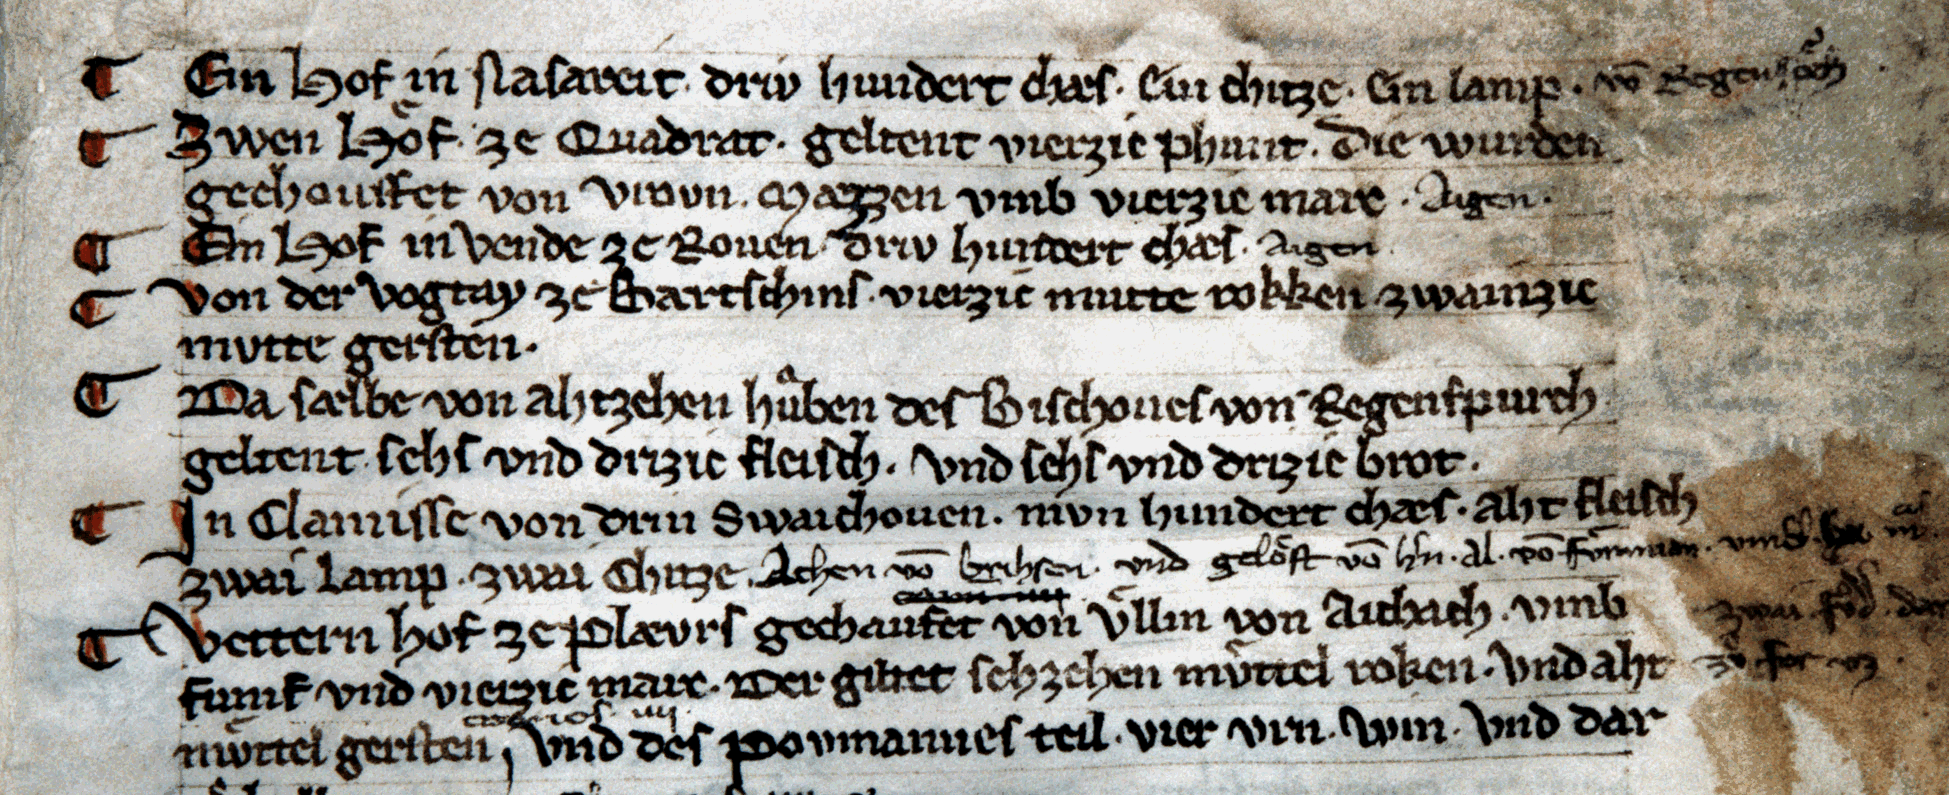 ¶ Ein Hof in slasaveit. driv hundert chæs. Ein chitze. Ein lamp. võ
¶ Zwen Hoͤf. ze Quadrat. geltent vierzic phunt. Die wurden
gechouffet von vrovn. Mazzen vmb vierzic marc. Aigen.
¶ Ein Hof in vende ze Rouen driv hundert chæs. Aigen.
¶ Von der Vogtay ze Bartschins. vierzic mutte rokken zwainzic
mvtte gersten.
¶ Da sælbe von ahtzehen huͦben des Bischoues von Regenspurch
geltent sehs vnd drizic fleisch. Vnd sehs vnd drizic brot.
¶ In Clamisse von drin Swaichouen. nivn hundert chæs. aht fleisch
zwai lamp. zwai Chitze. Achen võ brihsen. vnd geloͤst võ hn. al. võ
¶ Vettern hof ze Plævrs gechaufet von Vllin von Aichach. vmb zwai
funf vnd vierzic marc. Der giltet sehzehen mvttel roken. Vnd aht
mvttel gersten, Vnd des Povmannes teil. vier vrn. win. Vnd dar